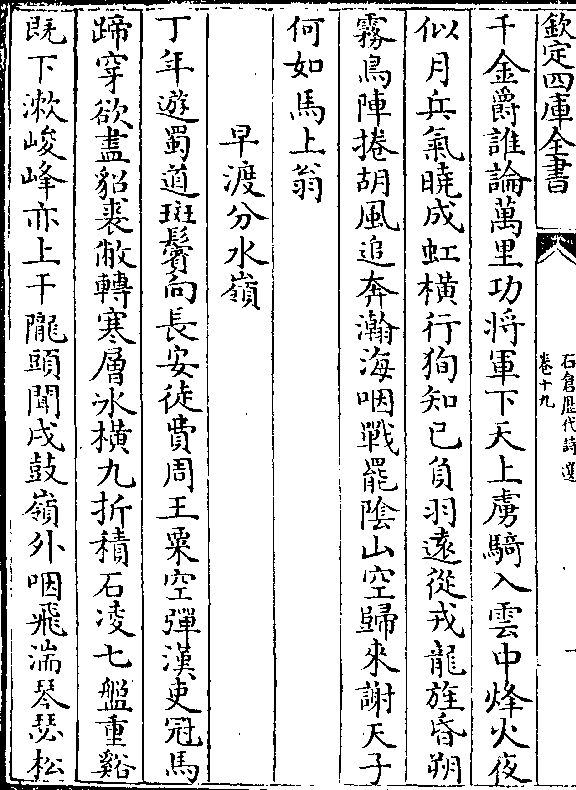 欽定四庫全書
石倉歷代詩選
卷十九
千金爵誰論萬里功將軍下天上虜騎入雲中烽火夜
似月兵氣曉成虹橫行徇知已負羽遠從戎龍旌昏朔
霧鳥陣捲胡風追奔瀚海咽戰罷陰山空歸來謝天子
何如馬上翁
早渡分水嶺
丁年遊蜀道斑鬢向長安徒費周王粟空彈漢吏冠馬
蹄穿欲盡貂裘敝轉寒層冰橫九折積石凌七盤重谿
既下漱峻峰亦上干隴頭聞戍鼓嶺外咽飛湍琴瑟松